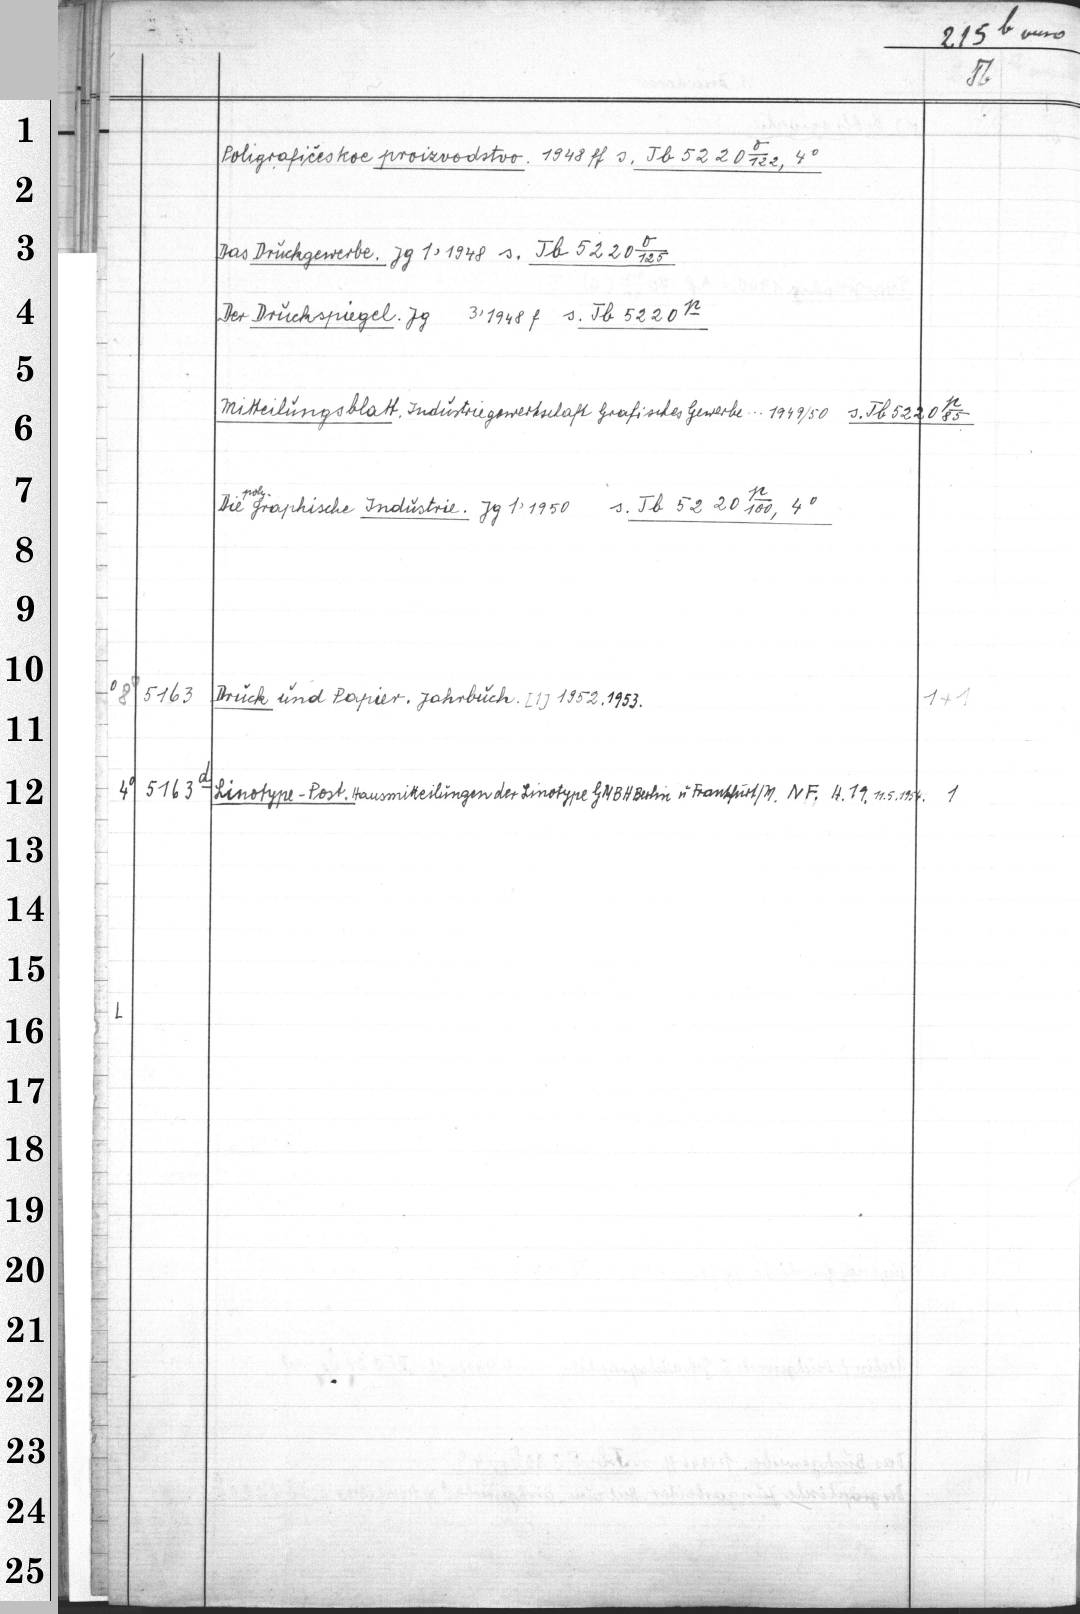 215 b verso
Tb
1
Poligrafičeskoe proizvodstvo. 1948 ff s. Tb 5220 σ/122, 4°
2
3
Das Druckgewerbe. Jg 1, 1948 s. Tb 5220 σ/125
4
Der Druckspiegel. Jg 3, 1948 f s. Tb 5220 p
5
6
Mitteilungsblatt. Industriegewerkschaft Grafisches Gewerbe ... 1949/50 s. Tb 5220 p/85
7
Die polygraphische Industrie. Jg 1, 1950 s. Tb 5220 p/100, 4°
8
9
10
8° 5163 Druck und Papier. Jahrbuch. [1] 1952. 1953. 1+1
11
12
4° 5163 d Linotype-Post. Hausmitteilungen der Linotype GMBH Berlin u Frankfurt/M. NF. H. 19. 11.5.1954. 1
13
14
15
L
16
17
18
19
20
21
22
23
24
25